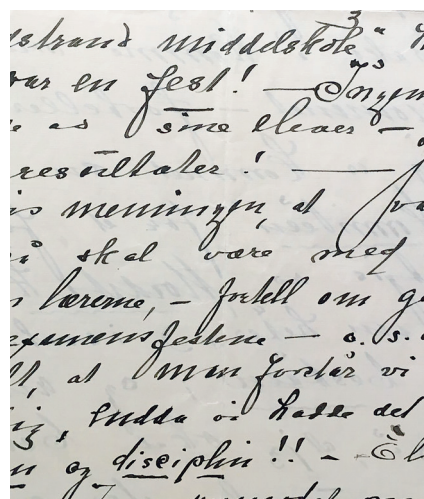 strand middelskole"
var en fest! — Ingen
e as sine elever —
resultater! —
is meningen, at
på skal være med
lærerne, — fortell om
examensfestene — o. s.
at man forstår vi
endda vi hadde det
og disciplin!! —